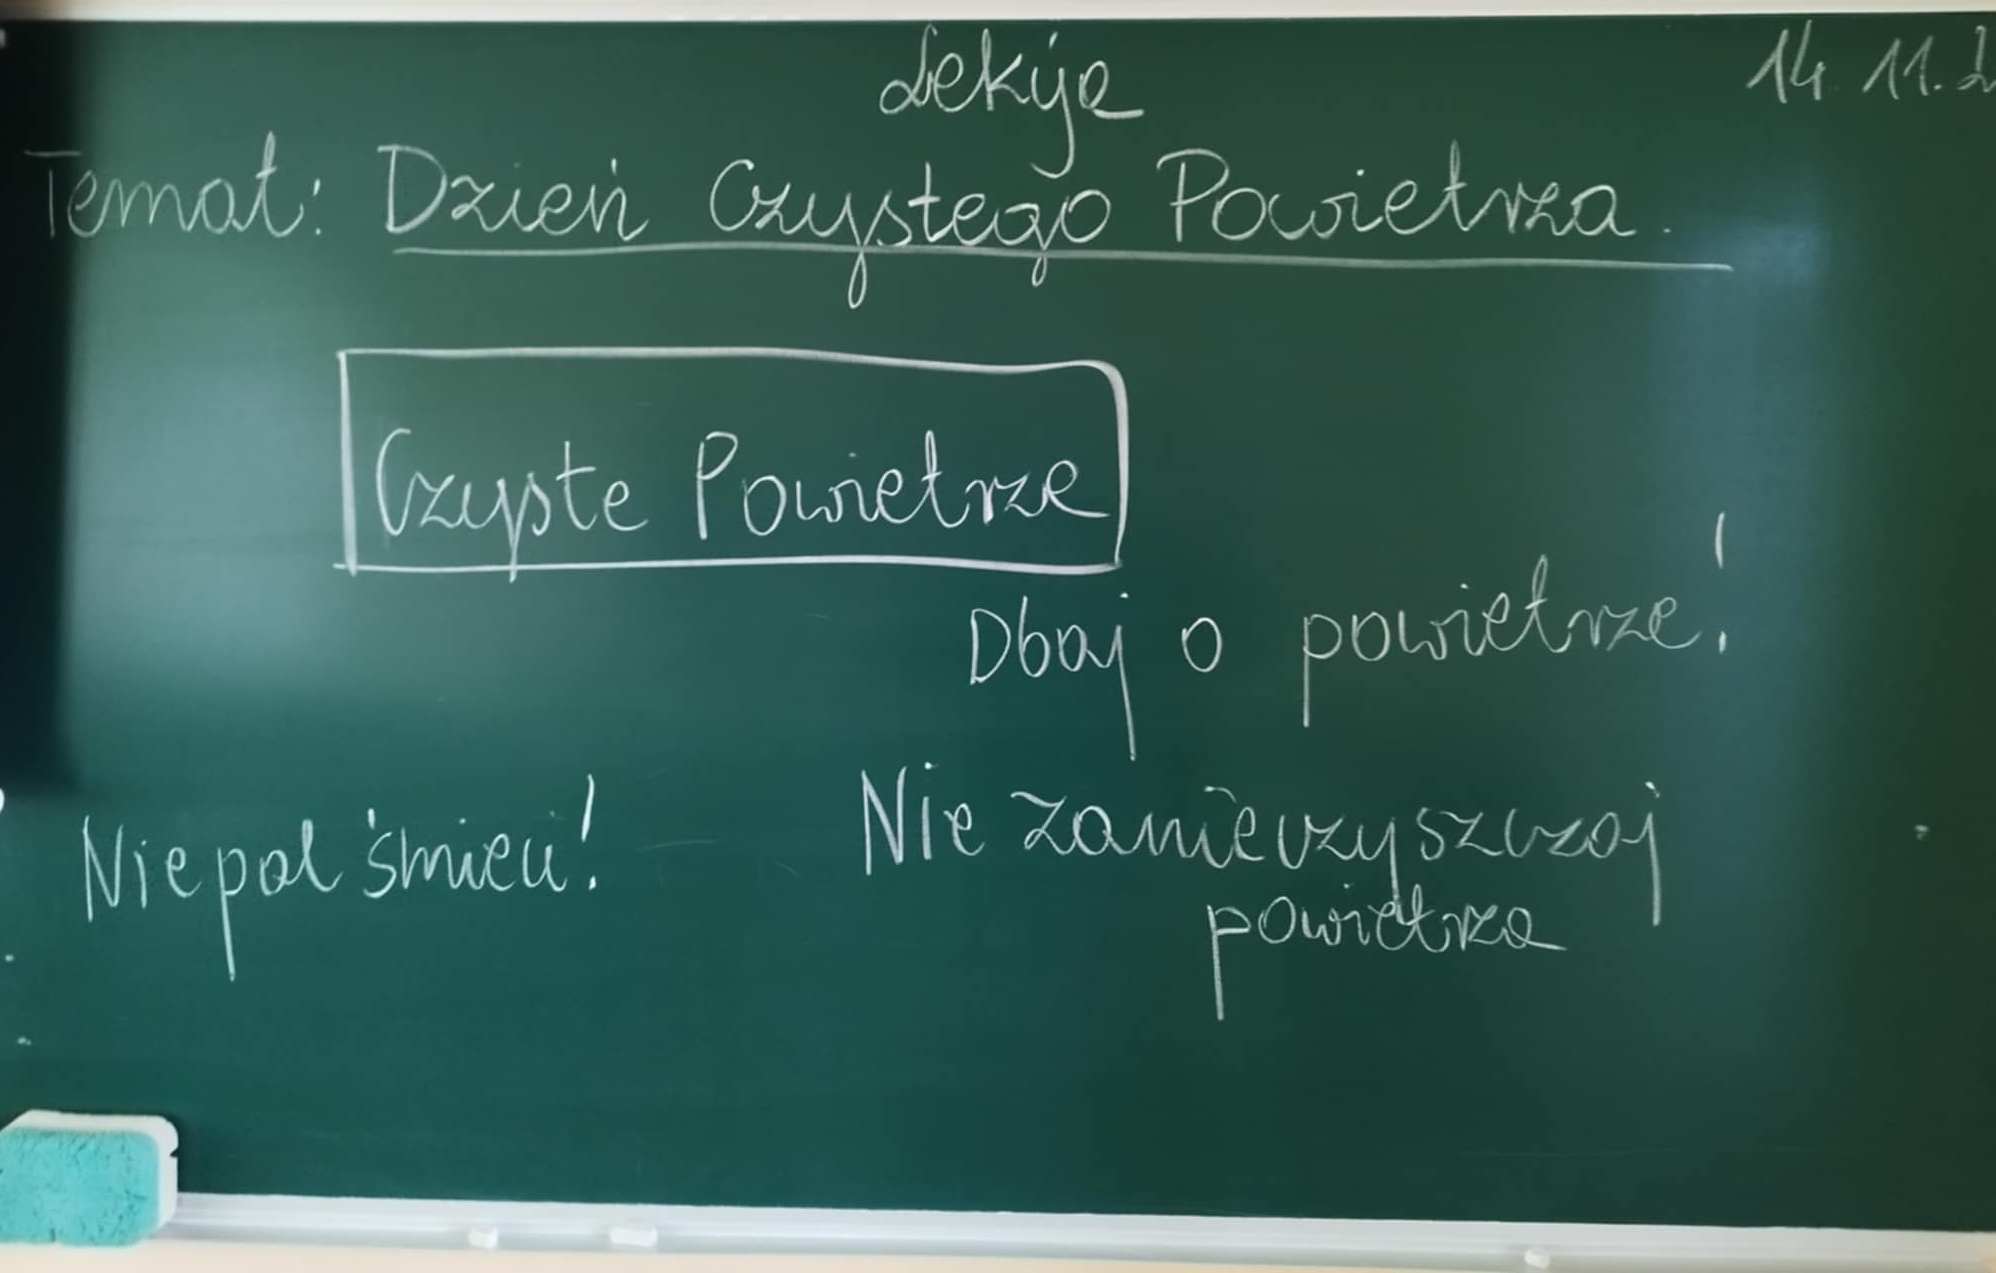 Lekcja
14.11.2
Temat: Dzień Czystego Powietrza.
Czyste Powietrze
Dbaj o powietrze!
Nie pal śmieci!
Nie zanieczyszczaj
powietrza